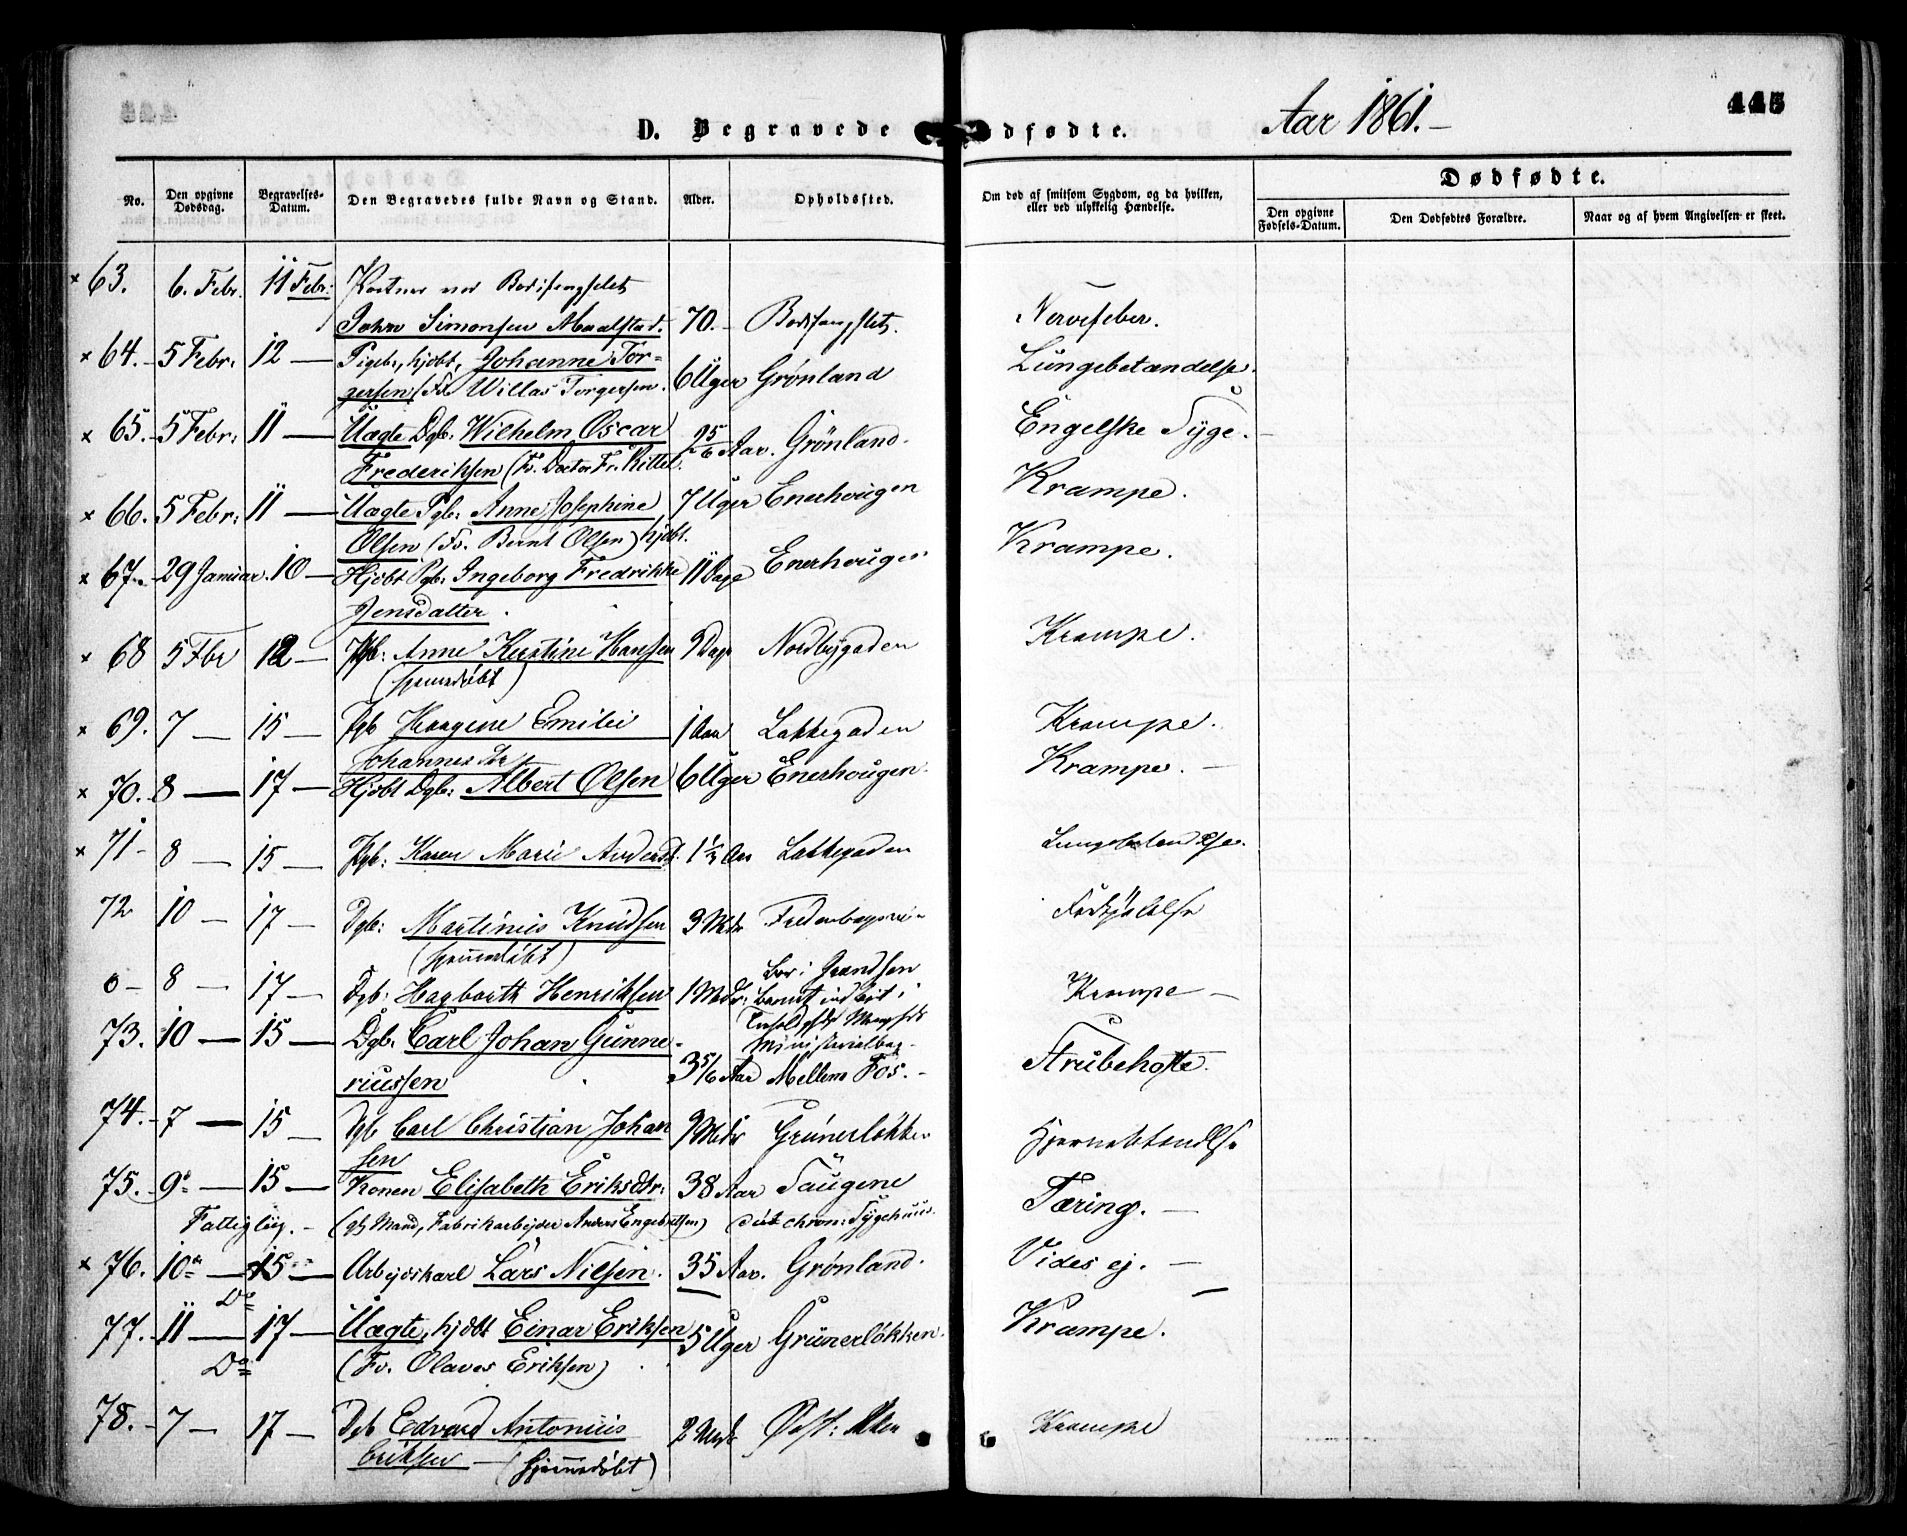 Aar 1861.–
445
D. Begravede
dfødte.
Dødfødte.
No.
Den opgivne Dødsdag.
Begravelses-Datum.
Den Begravedes fulde Navn og Stand.
Alder.
Opholdssted.
Om død af smitsom Sygdom, og da hvilken, eller ved ulykkelig Hændelse.
Den opgivne Fødsels-Datum.
Den Dødfødtes Forældre.
Naar og af hvem Angivelsen er skeet.
× 63. 6. Febr. 11 Febr:
John Simonsen Maalstad. 70.– Bodsfængslet. Nervefeber.
× 64.– 5 Febr: 12 — Pigeb., hjdbt, Johanne Tor=
gersen (Fv. Willas Torgersen. 6 Uger Grønland Lungebetændelse.
× 65.– 5 Febr: 11 — Uægte Dgb: Wilhelm Oscar
Frederiksen (Fv. Doctor Fr. Kittel. 2 5/6 Aar. Grønland. Engelske Syge.–
× 66. 5 Febr: 11 — Uægte Pgb: Anne Josephine
Olsen (Fv. Bernt Olsen) hjdbt. 7 Uger Enerhougen Krampe.
× 67.– 29 Januar. 10 — Hjdbt Pgb: Ingeborg Fredrikke
Jensdatter. 11 Dage Enerhougen Krampe.
× 68 5 Fbr 12 — Pgb: Anne Kirstine Hansen
(hjemmedøbt) 9 Dage Nordbygaden Krampe.
× 69. 7 — 15 — Pgb Haagine Emilie
Johannesdtr 1 Aar Lakkegaden Krampe.
× 70. 8 — 17 — Hjdbt Dgb: Albert Olsen 6 Uger Enerhougen. Krampe.–
× 71– 8 — 15 — Pgb: Karen Marie Andersd. 1 1/3 Aar Lakkegaden Lungebetændelse.
72 10 — 17 — Dgb: Martinius Knudsen
(hjemmedøbt) 3 Mdr Forkjølelse
0 – 8 — 17 — Dgb: Hagbarth Henriksen 1 Mdr: Krampe –
73. 10 — 15 — Dgb. Carl Johan Gunne-
riussen 3 5/6 Aar Mellem Fos.– Strubehoste.
74.– 7 — 15 — Dgb Carl Christian Johan
sen 9 Mdr Grünerløkken Hjernebetændelse
75. 9 — 15 — Konen Elisabeth Eriksdtr: 38 Aar Saugene Tæring.–
Fattiglig.– (gl. Mand, Fabrikarbejder Anders Engebretsen) chron: Sygehuus.
× 76. 10 — 15 — Arbejdskarl Lars Nilsen. 35 Aar. Grønland. Vides ej.–
Do
77. 11 — 17 — Uægte, hjdbt Einar Eriksen 5 Uger Grünerløkken. Krampe.
Do (Fv. Olaves Eriksen)
78.– 7 — 17 — Dgb Edvard Antonius
Eriksen — (hjemmedøbt) 2 Mdr Krampe